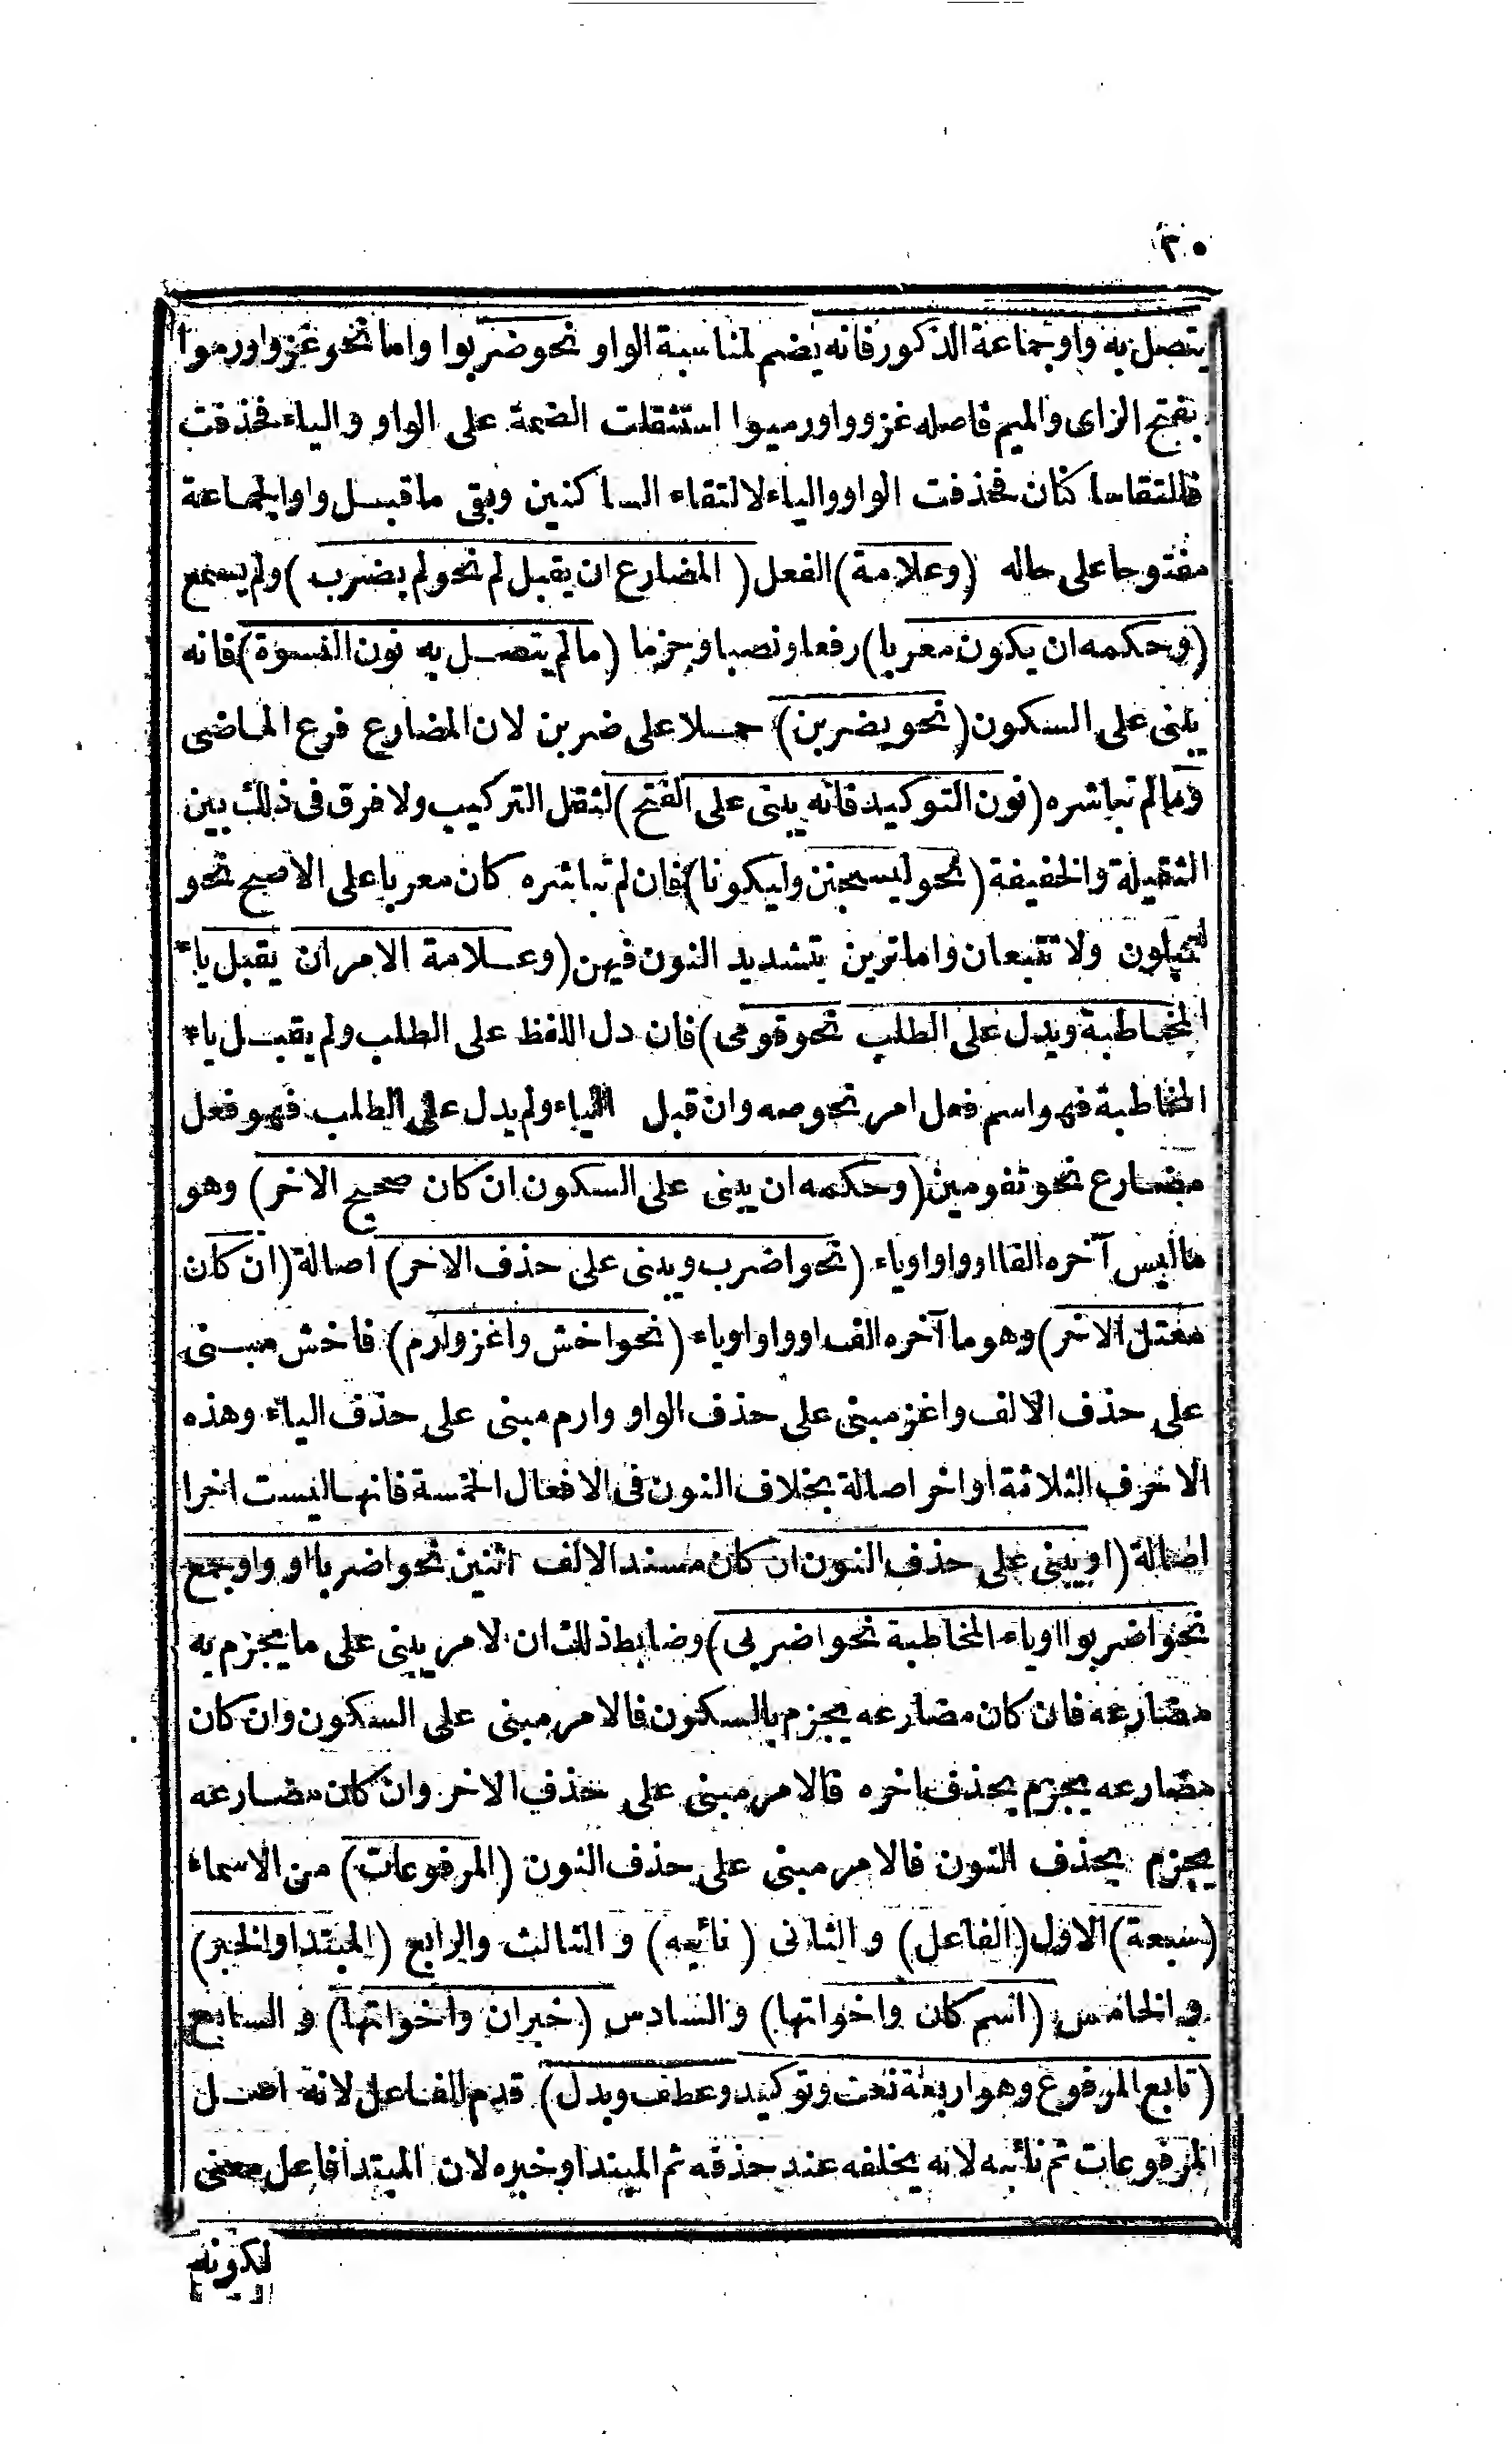 ٣٠
يتصل به واو جماعة الذكور فانه يضم لمناسبة الواو نحو ضربوا واما نحو غزوا ورموا
بفتح الزاى والميم فاصله غزووا ورميوا استثقلت الضمة على الواو والياء فحذفت
فالتقا ساكنان فحذفت الواو والياء لالتقاء الساكنين وبقى ماقبل واو الجماعة
مفتوحا على حاله (وعلامة) الفعل (المضارع ان يقبل لم نحو لم يضرب) ولم يسمع
(وحكمه ان يكون معربا) رفعا ونصبا وجزما (مالم يتصل به نون النسوة) فانه
يبنى على السكون (نحو يضربن) حملا على ضربن لان المضارع فرع الماضى
ومالم تباشره (نون التوكيد فانه يبنى على الفتح) لثقل التركيب ولا فرق فى ذلك بين
الثقيلة والخفيفة (نحو ليسجنن وليكونا) فان لم تباشره كان معربا على الاصح نحو
لتبلون ولا تتبعان واما ترين بتشديد النون فيهن (وعلامة الامر ان يقبل ياء
المخاطبة ويدل على الطلب نحو قومى) فان دل اللفظ على الطلب ولم يقبل ياء
المخاطبة فهو اسم فعل امر نحو صه وان قبل الياء ولم يدل على الطلب فهو فعل
مضارع نحو تقومين (وحكمه ان يبنى على السكون ان كان صحيح الاخر) وهو
ماليس آخره الفا او واوا وياء (نحو اضرب ويبنى على حذف الاخر) اصالة (ان كان
معتل الاخر) وهو ما آخره الف او واوا وياء (نحو اخش واغز وارم) فاخش مبنى
على حذف الالف واغز مبنى على حذف الواو وارم مبنى على حذف الياء وهذه
الاحرف الثلاثة اواخر اصالة بخلاف النون فى الافعال الخمسة فانها ليست اخرا
اصالة (او يبنى على حذف النون ان كان مسندا لالف اثنين نحو اضربا او واو جمع
نحو اضربوا او ياء المخاطبة نحو اضربى) وضابط ذلك ان الامر يبنى على ما يجزم به
مضارعه فان كان مضارعه يجزم بالسكون فالامر مبنى على السكون وان كان
مضارعه يجزم بحذف اخره فالامر مبنى على حذف الاخر وان كان مضارعه
يجزم بحذف النون فالامر مبنى على حذف النون (المرفوعات) من الاسماء
(سبعة) الاول (الفاعل) و الثانى (نائبه) و الثالث والرابع (المبتدا والخبر)
و الخامس (اسم كان واخواتها) و السادس (خبران واخواتها) و السابع
(تابع المرفوع وهو اربعة نعت وتوكيد وعطف وبدل) قدم الفاعل لانه اصل
المرفوعات ثم نائبه لانه يخلفه عند حذفه ثم المبتدا وخبره لان المبتدأ فاعل معنى
لكونه